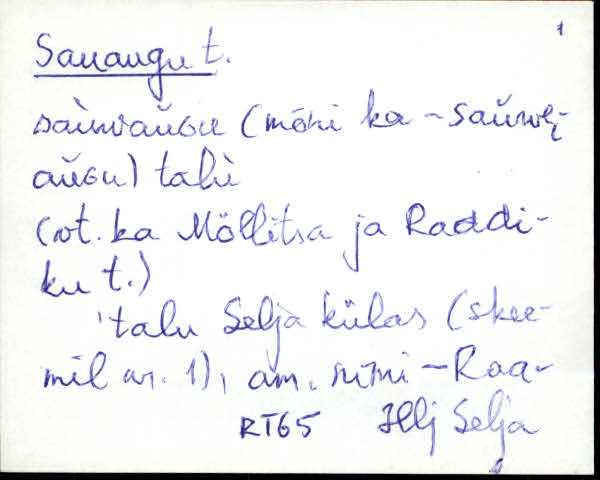 1
Sauaugu t.
(mõni ka -
talu
(vt. ka Möllitsa ja Raddi-
ku t.)
'talu Selja külas (skee-
mil nr. 1), am. nimi - Raa-
RT65 Hlj Selja